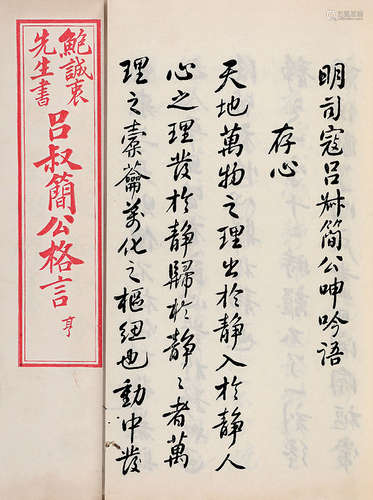 明司寇吕叔簡公呻吟語
存心
天地萬物之理出於静入於静人
心之理發於静歸於静〻者萬
理之橐蘥萬化之樞紐也動中發
鮑誠衷
先生書
吕叔簡公格言
亨